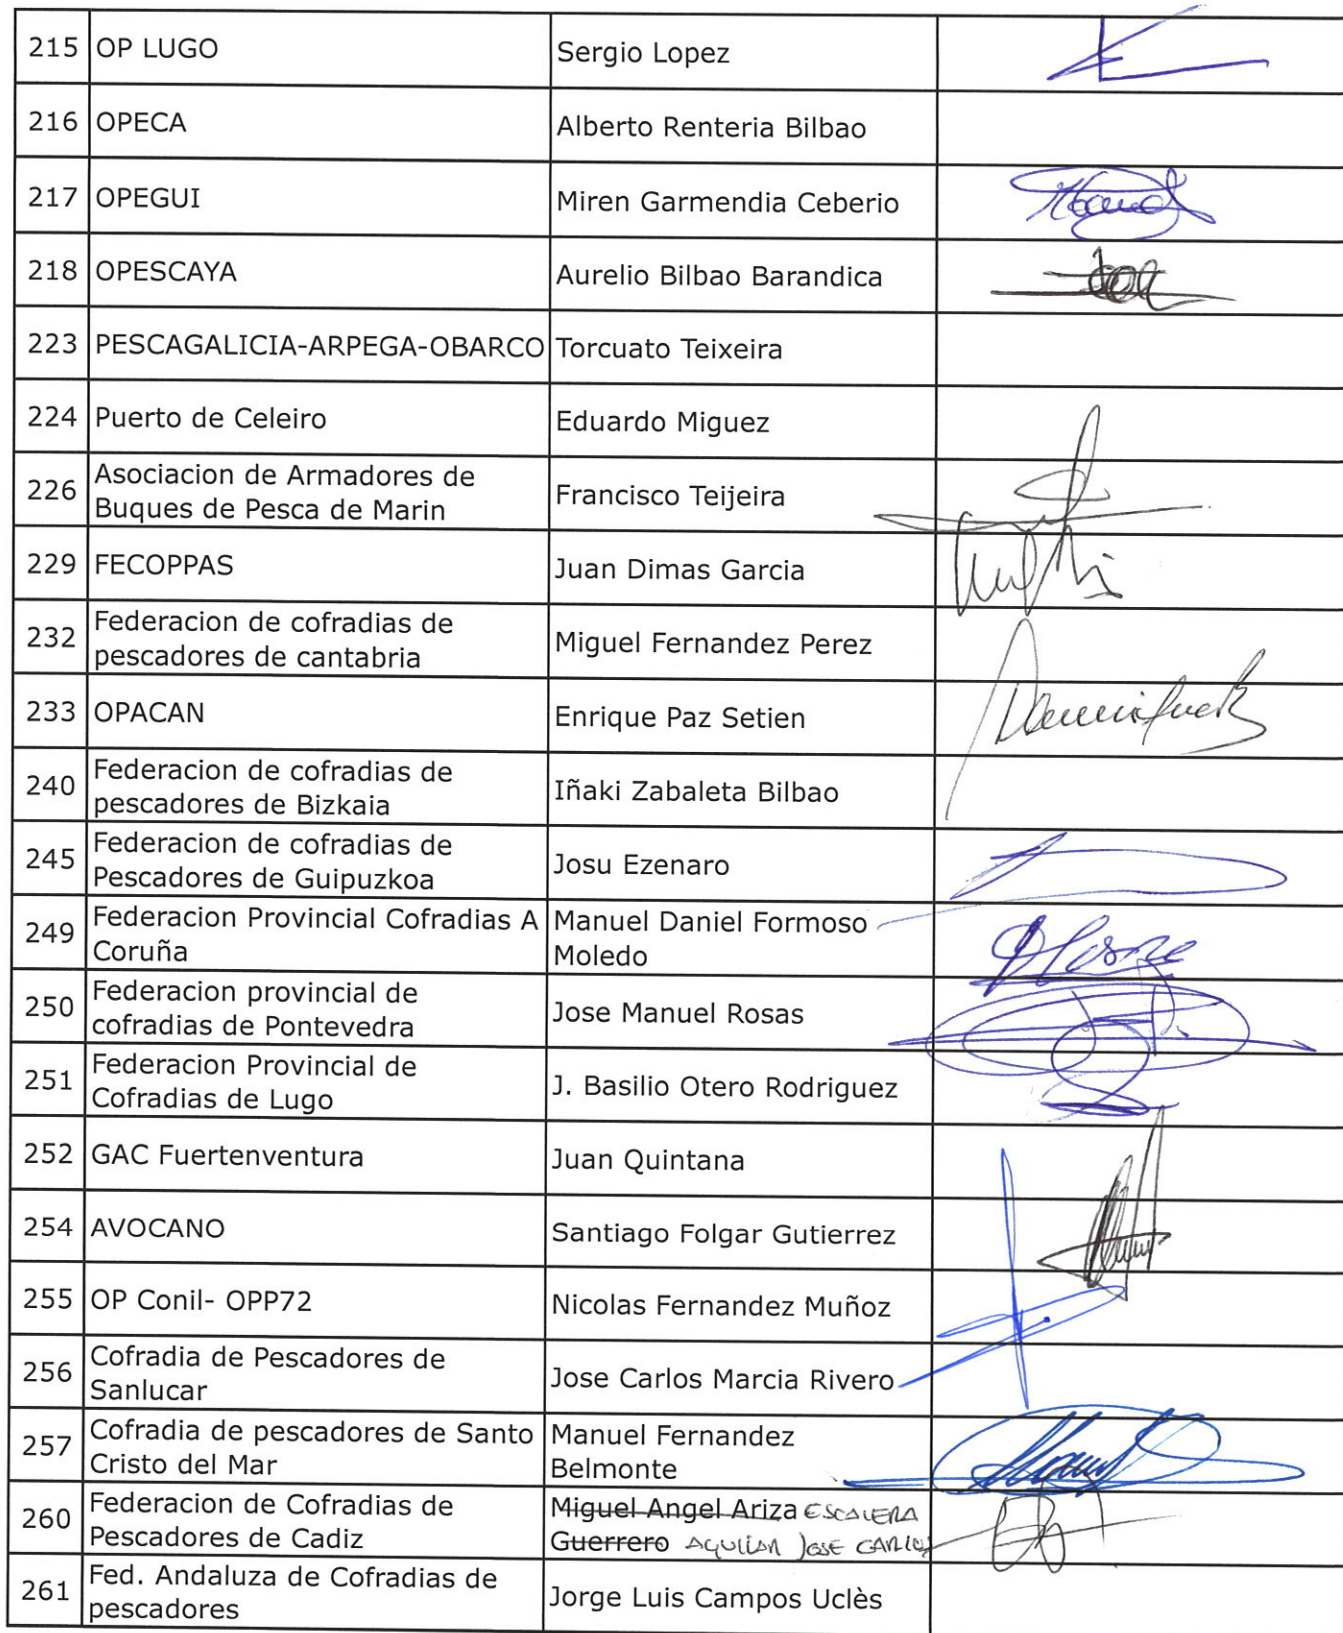 215 OP LUGO Sergio Lopez
216 OPECA Alberto Renteria Bilbao
217 OPEGUI Miren Garmendia Ceberio
218 OPESCAYA Aurelio Bilbao Barandica
223 PESCAGALICIA-ARPEGA-OBARCO Torcuato Teixeira
224 Puerto de Celeiro Eduardo Miguez
226 Asociacion de Armadores de
Buques de Pesca de Marin Francisco Teijeira
229 FECOPPAS Juan Dimas Garcia
232 Federacion de cofradias de
pescadores de cantabria Miguel Fernandez Perez
233 OPACAN Enrique Paz Setien
240 Federacion de cofradias de
pescadores de Bizkaia Iñaki Zabaleta Bilbao
245 Federacion de cofradias de
Pescadores de Guipuzkoa Josu Ezenaro
249 Federacion Provincial Cofradias A Manuel Daniel Formoso
Coruña Moledo
250 Federacion provincial de
cofradias de Pontevedra Jose Manuel Rosas
251 Federacion Provincial de
Cofradias de Lugo J. Basilio Otero Rodriguez
252 GAC Fuertenventura Juan Quintana
254 AVOCANO Santiago Folgar Gutierrez
255 OP Conil- OPP72 Nicolas Fernandez Muñoz
256 Cofradia de Pescadores de
Sanlucar Jose Carlos Marcia Rivero
257 Cofradia de pescadores de Santo Manuel Fernandez
Cristo del Mar Belmonte
260 Federacion de Cofradias de Miguel Angel Ariza ESCALERA
Pescadores de Cadiz Guerrero AGUILAR JOSE CARLOS
261 Fed. Andaluza de Cofradias de
pescadores Jorge Luis Campos Uclès